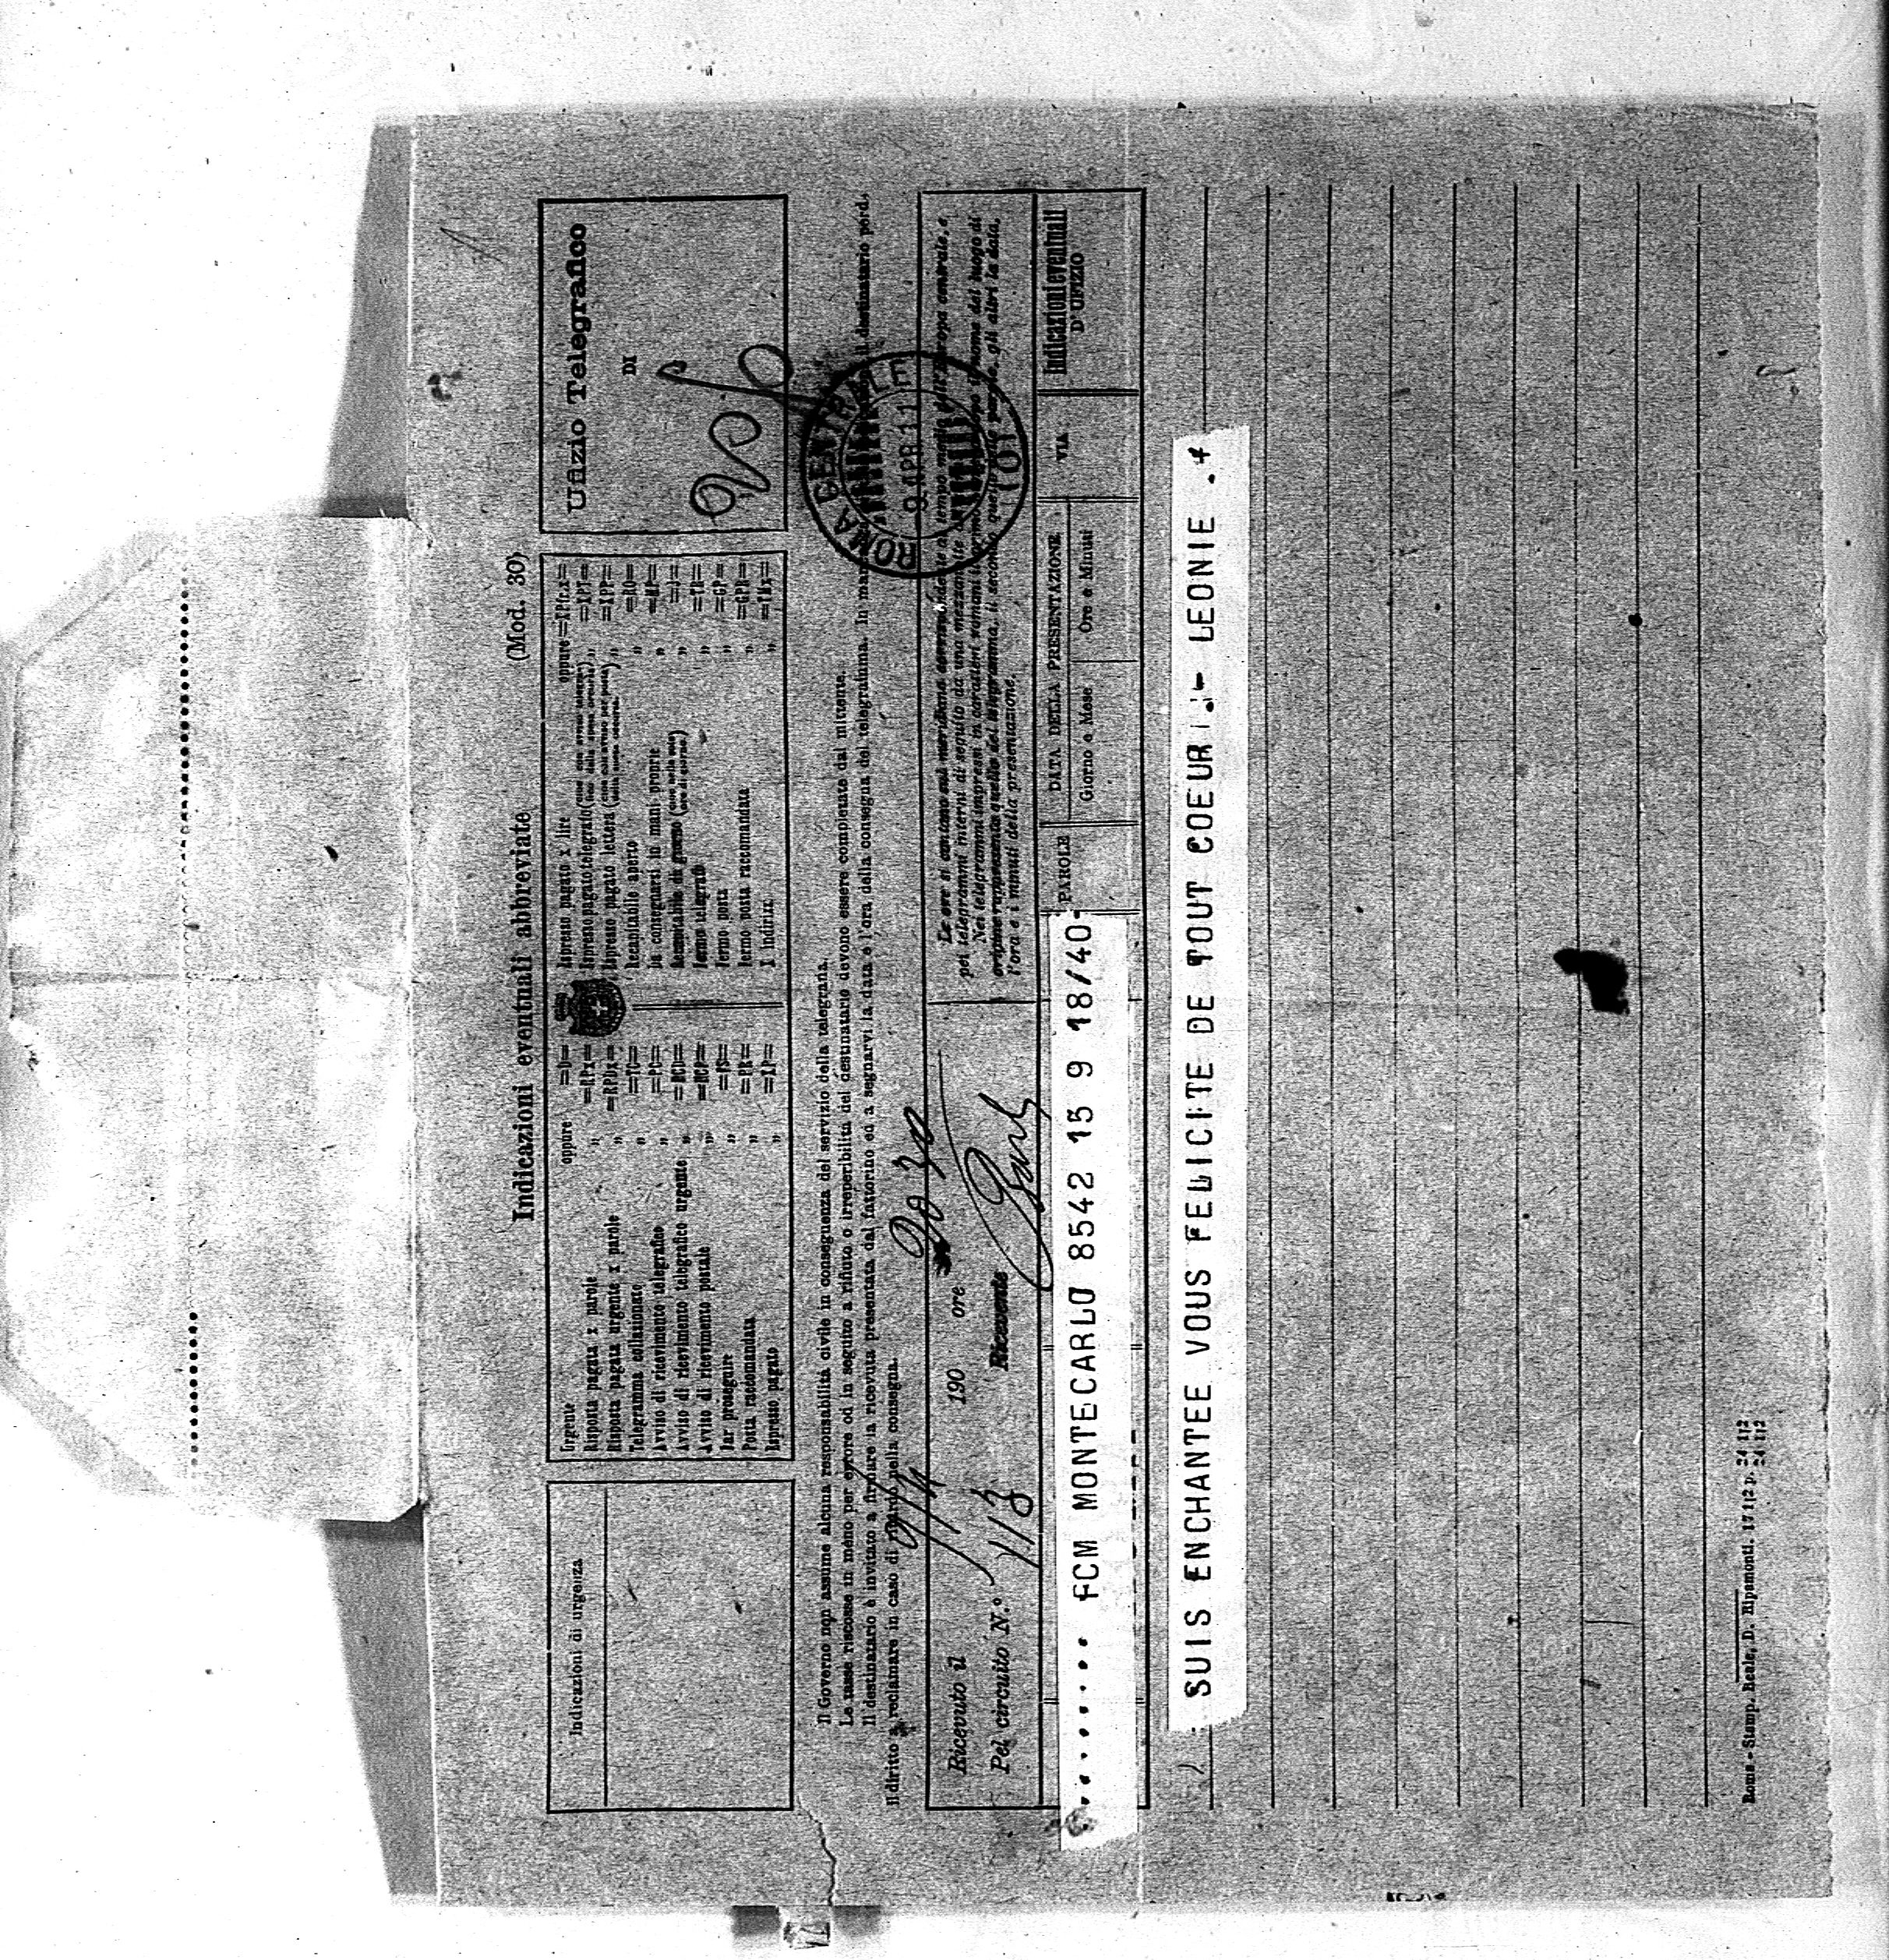 (Mod. 30)
Indicazioni eventuali abbreviate
Indicazioni di urgenza
Urgente oppure =D=
Risposta pagata x parole „ =RPx=
Risposta pagata urgente x parole „ =RPDx=
Telegramma collazionato „ =TC=
Avviso di ricevimento telegrafico „ =PC=
Avviso di ricevimento telegrafico urgente „ =PCD=
Avviso di ricevimento postale „ =PCP=
Far proseguire „ =FS=
Posta raccomandata „ =PR=
Espresso pagato „ =XP=
Espresso pagato x lire oppure =XPfr.x=
Espresso pagato telegrafo „ =XPT=
Espresso pagato lettera „ =XPP=
Recapitabile aperto „ =RO=
Da consegnarsi in mani proprie „ =MP=
Recapitabile di giorno „ =J=
Fermo telegrafo „ =TR=
Fermo posta „ =GP=
Fermo posta raccomandata „ =GPR=
X Indirizzi „ =TMx=
Ufizio Telegrafico
DI
Il Governo non assume alcuna responsabilità civile in conseguenza del servizio della telegrafia.
Le tasse riscosse in meno per errore od in seguito a rifiuto o irreperibilità del destinatario devono essere completate dal mittente.
Il destinatario è invitato a firmare la ricevuta presentata dal fattorino ed a segnarvi la data e l'ora della consegna del telegramma. In il destinatario perde
il diritto a reclamare in caso di ritardo nella consegna.
ROMA CENTRALE
9 APR 11
(10)
Ricevuto il 9/4 190 ore 20 30
Pel circuito N.° 113 Ricevente
Le ore si contano sul meridiano corrispondente al tempo medio dell'Europa centrale, e
pei telegrammi interni di seguito da una mezzanotte
Nei telegrammi impressi in caratteri romani il nome del luogo di
origine rappresenta quello del telegramma, il secondo quello delle parole, gli altri la data,
l'ora e i minuti della presentazione.
PAROLE
DATA DELLA PRESENTAZIONE
Giorno e Mese
Ore e Minuti
VIA
Indicazioni eventuali
D'UFIZIO
FCM MONTECARLO 8542 15 9 18/40-
SUIS ENCHANTEE VOUS FELICITE DE TOUT COEUR .- LEONIE .+
Roma - Stamp. Reale, D. Ripamonti. 17 1|2 p. 24 1|2
24 1|2